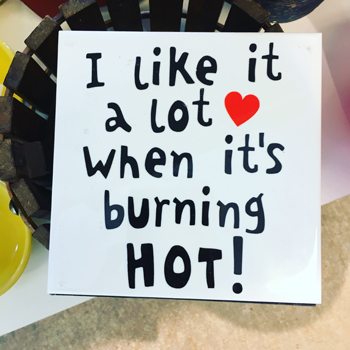 I like it
a lot ♥
when it's
burning
HOT!